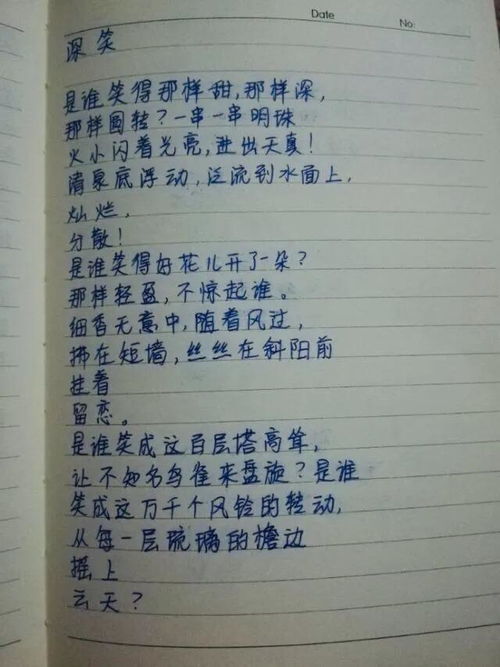 Date No:
深笑
是谁笑得那样甜,那样深,
那样圆转?一串一串明珠
大小闪着光亮,迸出天真!
清泉底浮动,泛流到水面上,
灿烂,
分散!
是谁笑得好花儿开了一朵?
那样轻盈,不惊起谁。
细香无意中,随着风过,
拂在短墙,丝丝在斜阳前
挂着
留恋。
是谁笑成这百层塔高耸,
让不知名鸟雀来盘旋?是谁
笑成这万千个风铃的转动,
从每一层琉璃的檐边
摇上
云天?